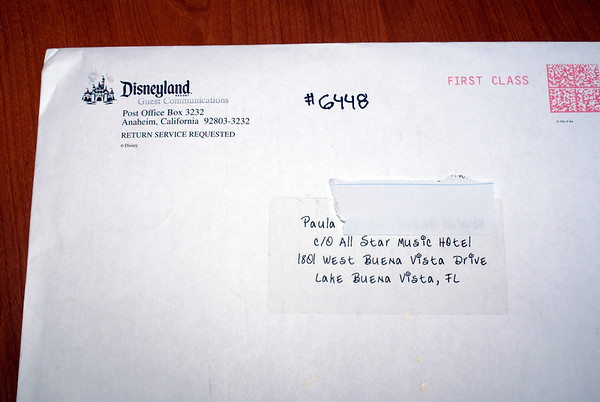 Disneyland
RESORT
Guest Communications
Post Office Box 3232
Anaheim, California 92803-3232
RETURN SERVICE REQUESTED
© Disney
#6448
FIRST CLASS
Paula
c/o All Star Music Hotel
1801 West Buena Vista Drive
Lake Buena Vista, FL